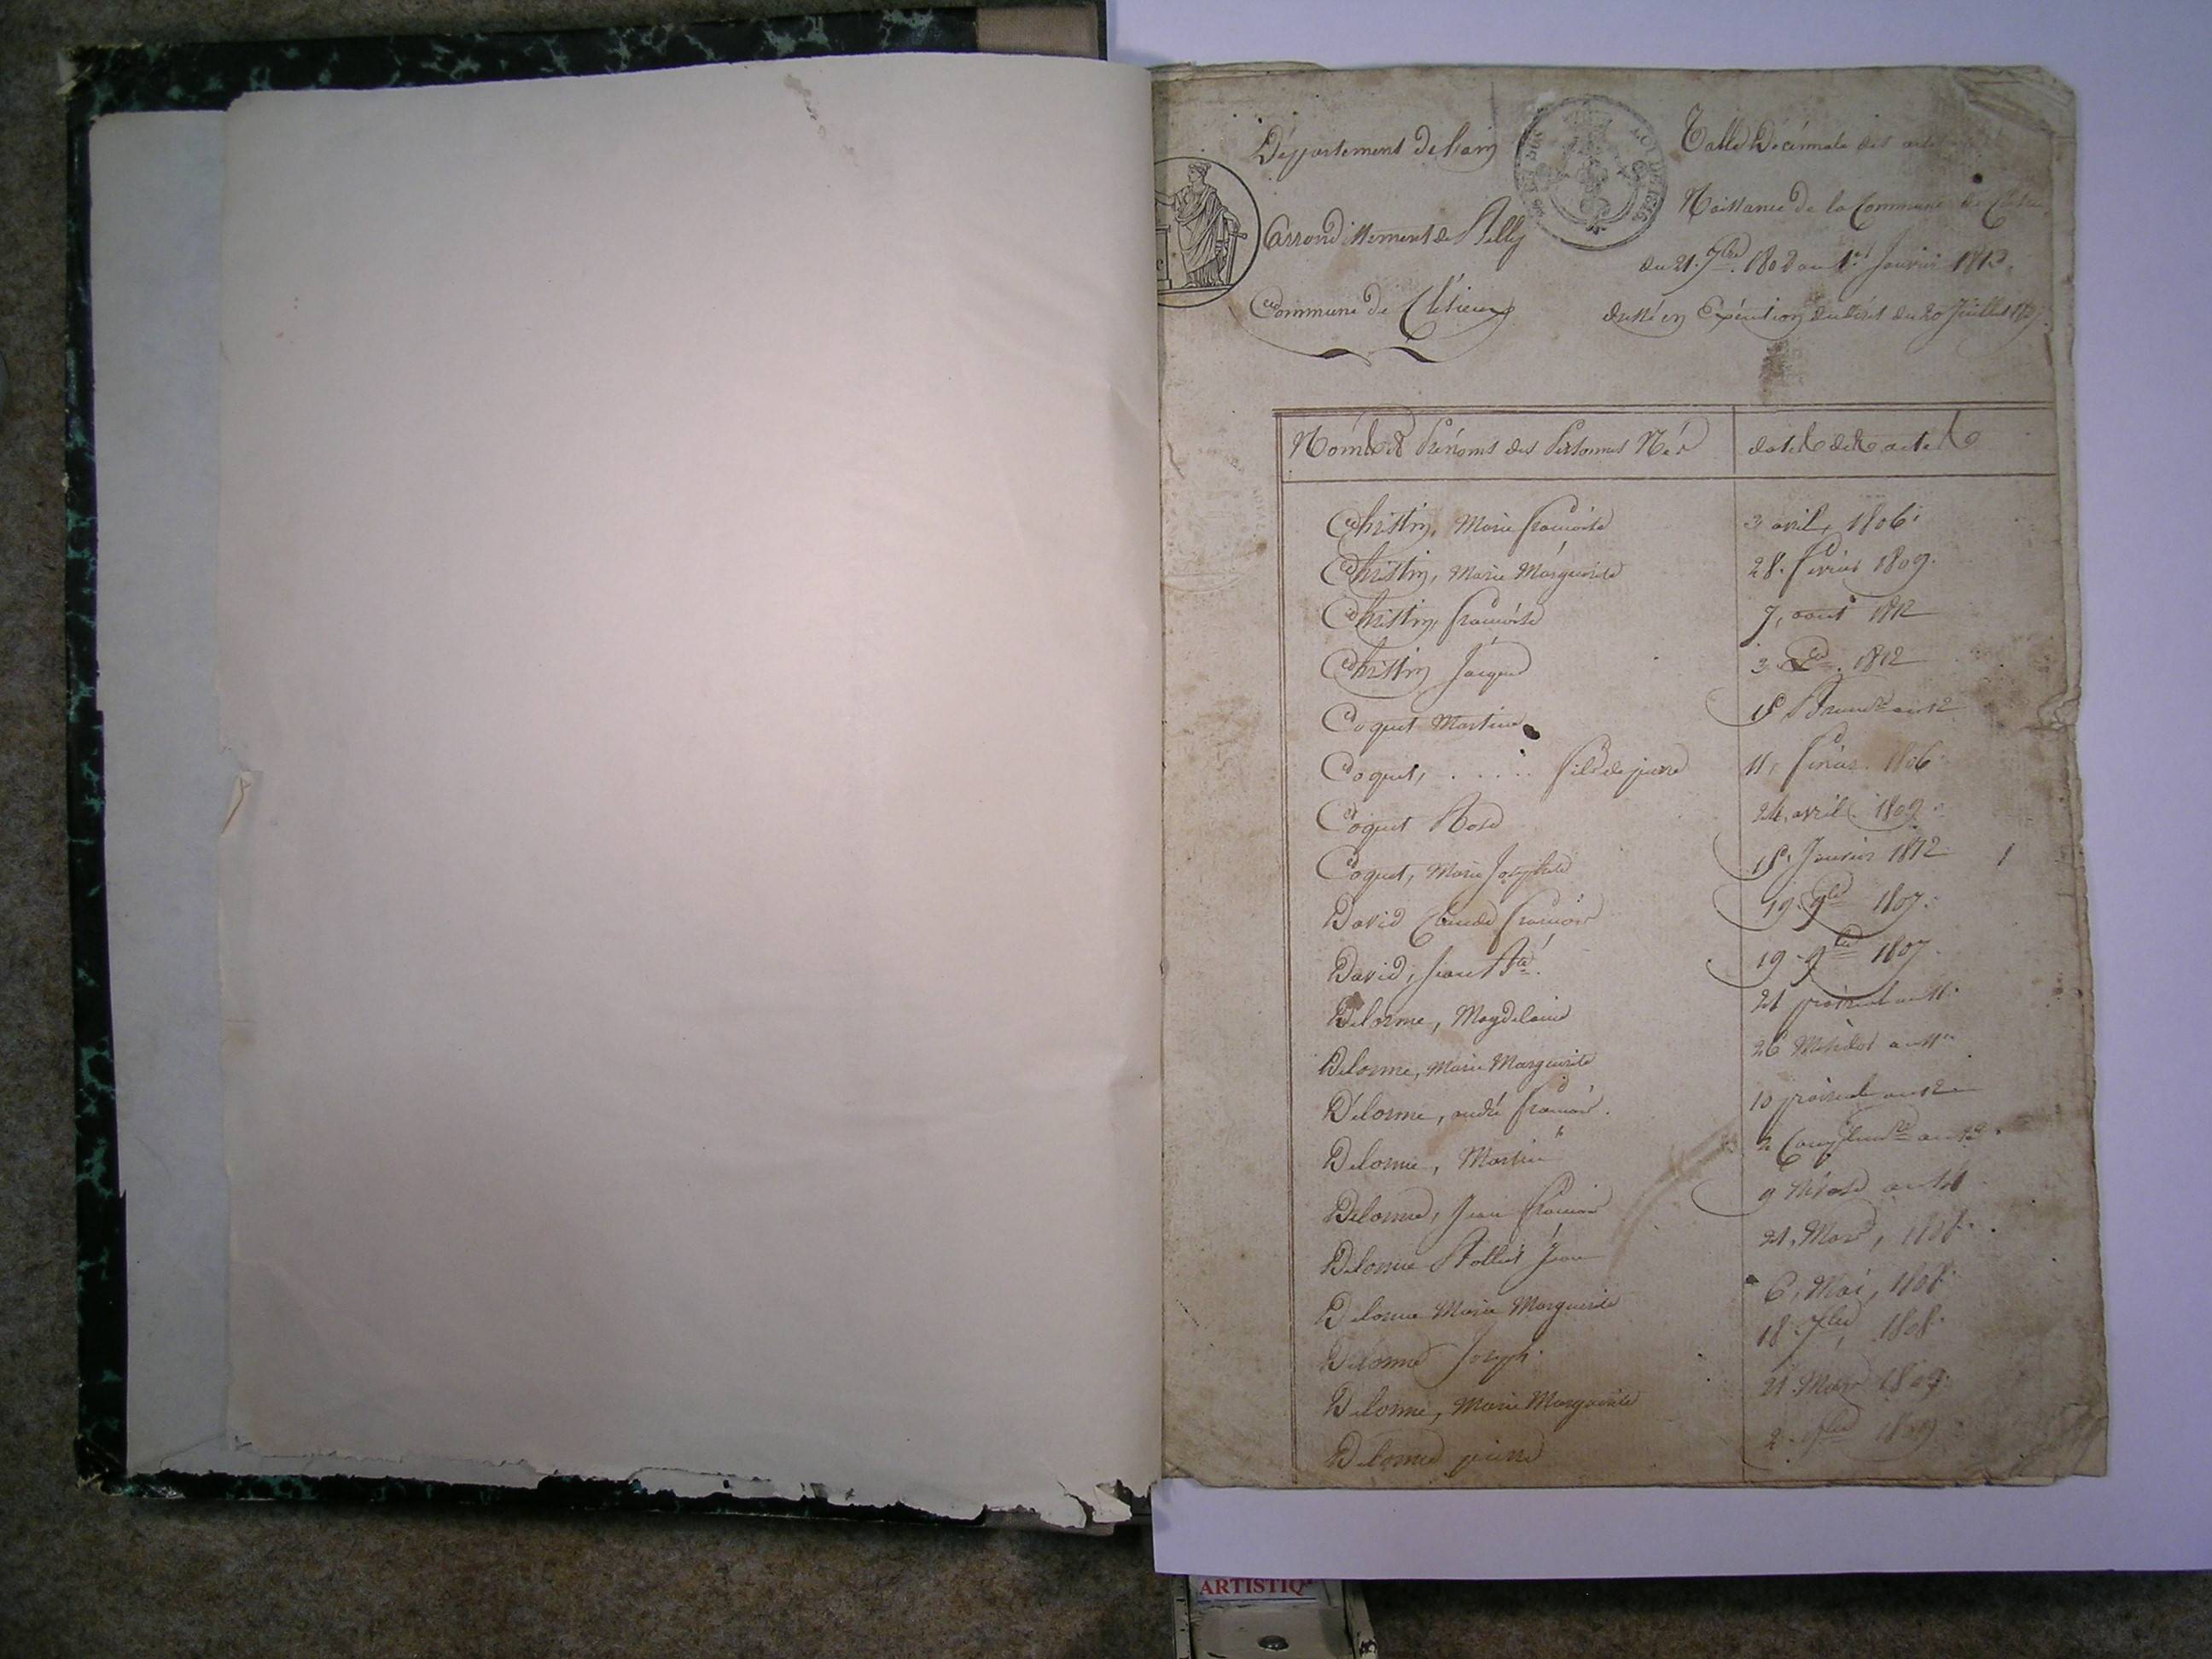 Département de l'ain
Table Décennale des actes
Naissance de la Commune de
arrondissement de Belly
du 21. 7bre. 1802 au 1er Janvier 1813.
Commune de
dressé en Exécution du décret du 20 Juillet 1807.
LOI DE 1816
Noms et Prénoms des Personnes Nés
dates des actes
Christin, Marie françoise
3 avril, 1806
Christin, Marie Marguerite
28. févrièr 1809.
Christin, françoise
7, aout 1812
Christin Jacques
3 1812
Coquet Martine
18 Brumre an 12
Coquet, . . . . . fils de pierre
11, févrièr 1806
Coquet Rose
24, avril 1809
Coquet, Marie Josephete
18, Janvier 1812
David Claude françois
19. 9bre 1807.
David, jean Bte.
19. 9bre 1807.
Delorme, Magdelaine
21 prairial an 11.
Delorme, Marie Marguerite
26 Mésidor an 11
Délorme, andré françois.
10 prairial an 12
Delorme, Martin
2 Complemre an 12.
Delorme, Jean françois
9 Nivose an 14
Delorme Jean
21, Mars, 1808.
Delorme Marie Marguerite
6, Mai, 1808.
Delorme Joseph
18. 7bre 1808.
Delorme, Marie Marguerite
21 Mars 1809.
Delorme pierre
2. 1809
ARTISTIQ